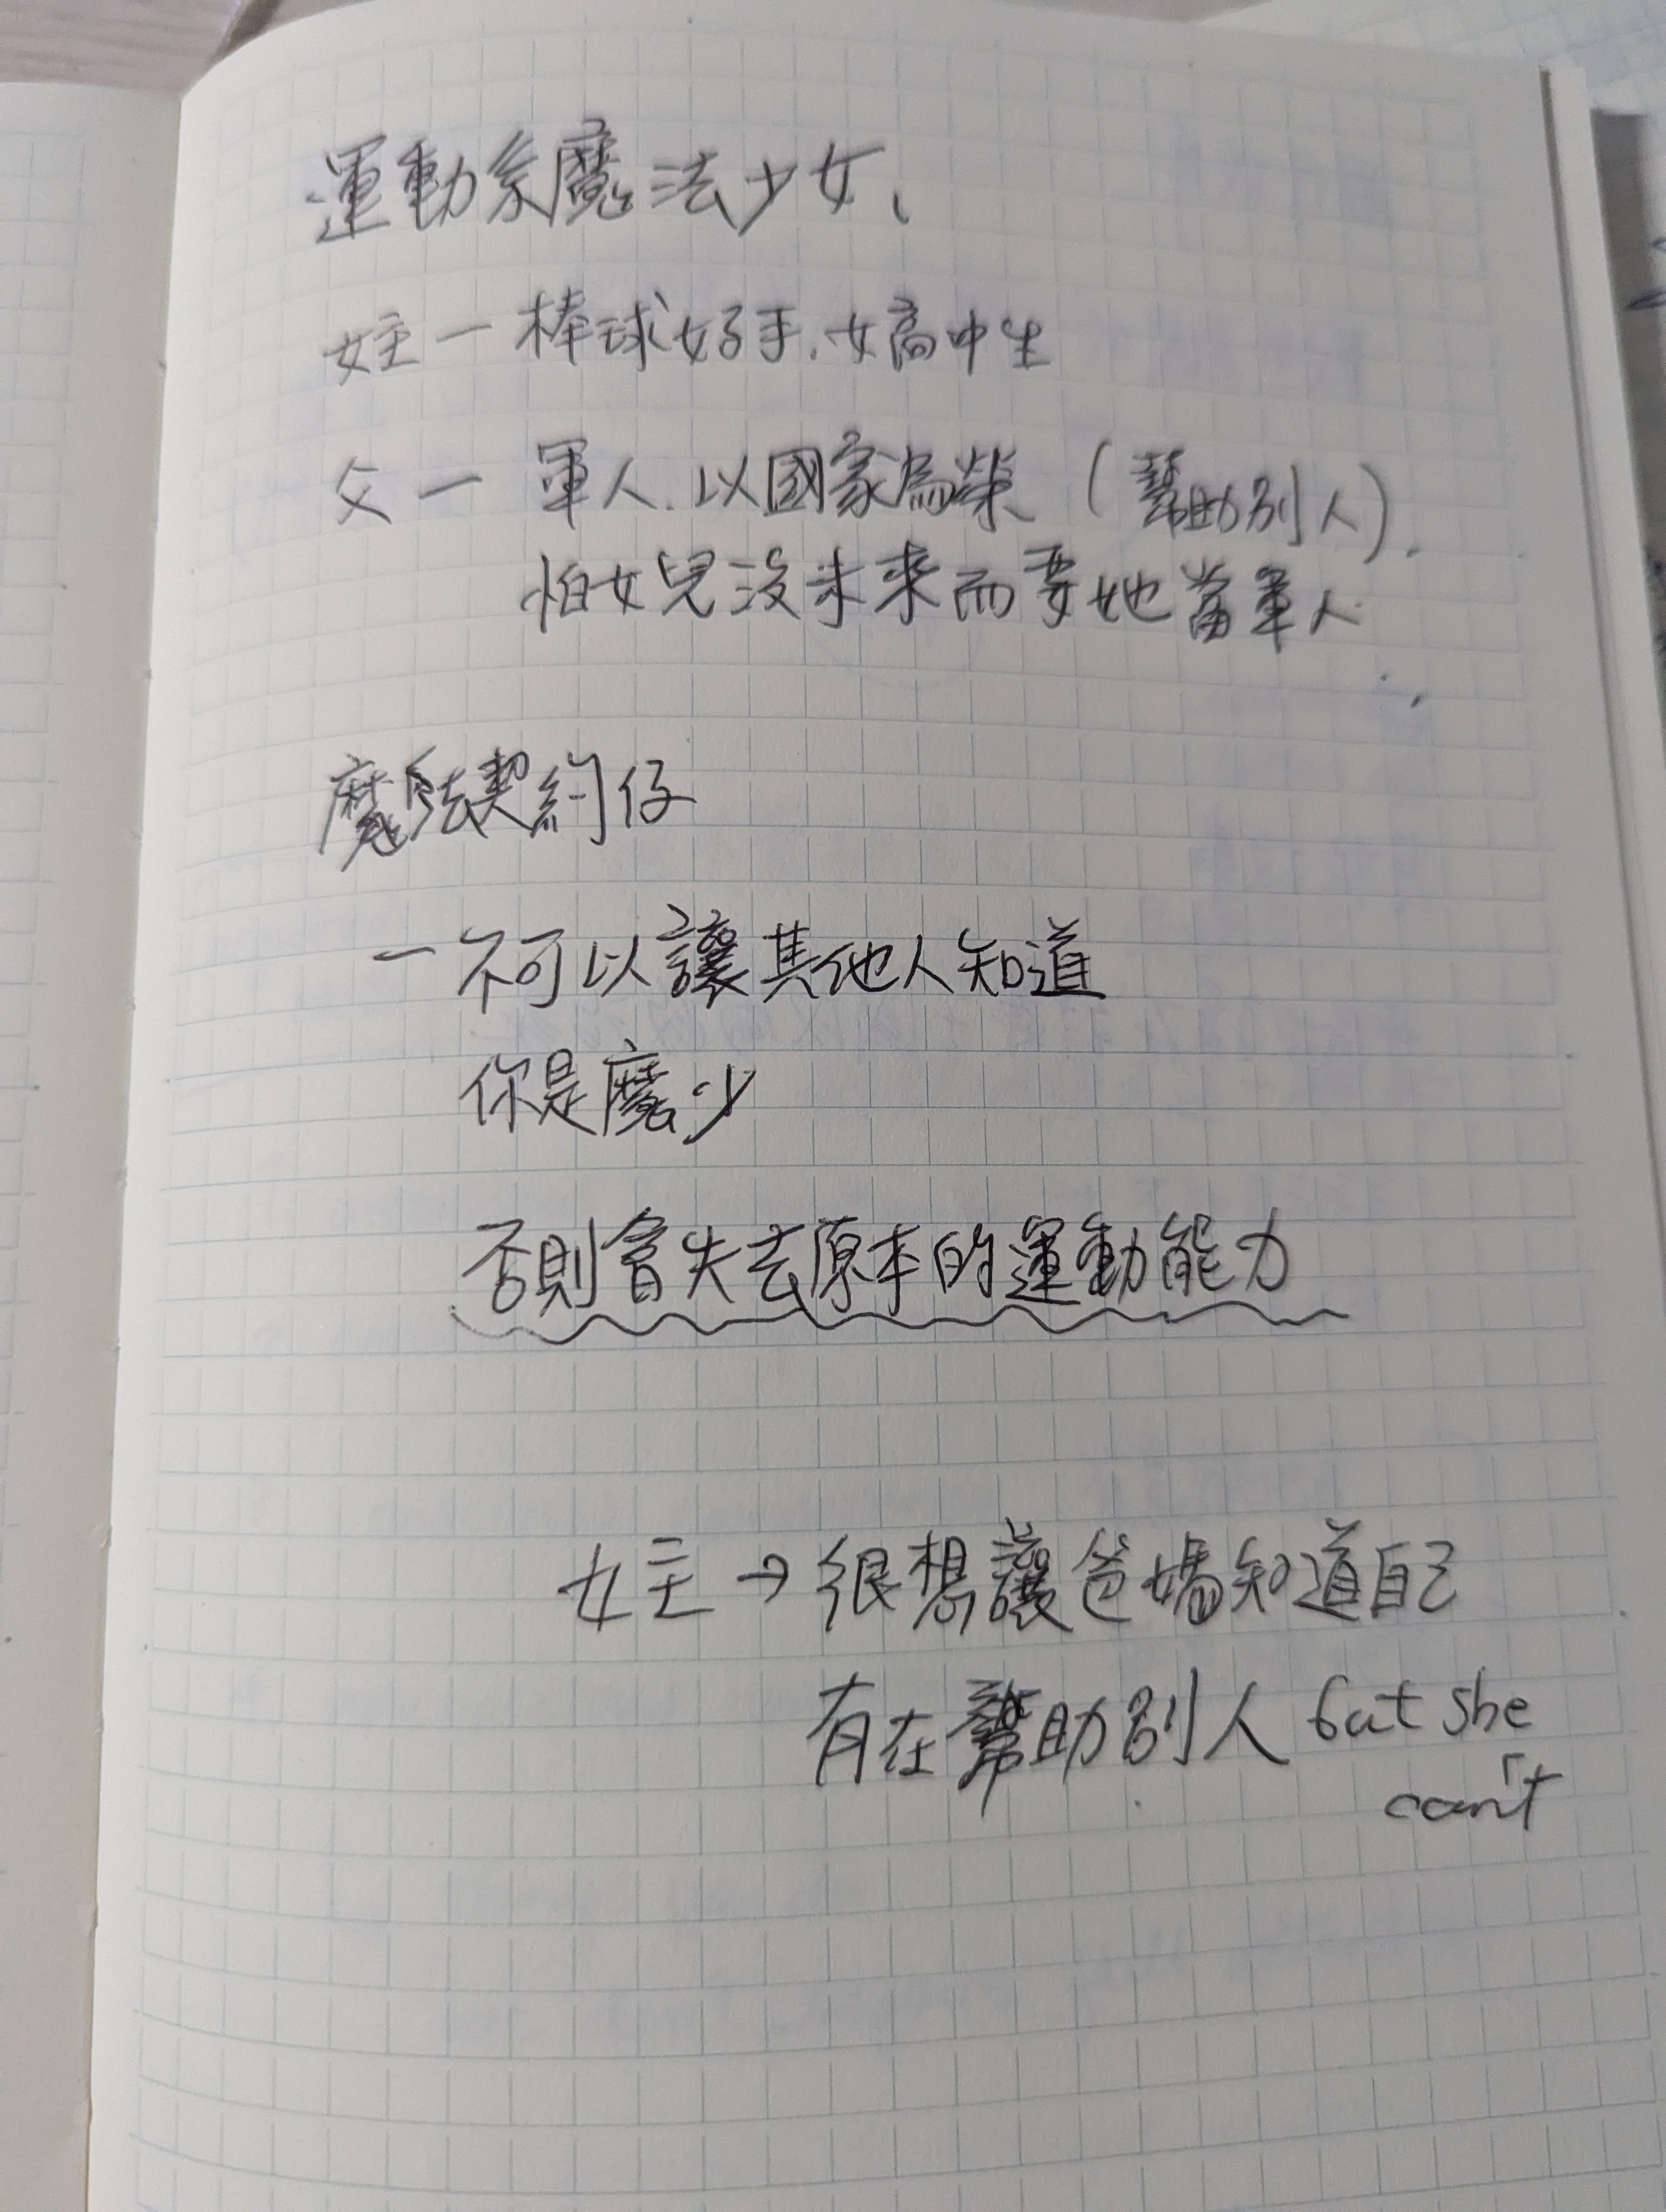 運動系魔法少女、
女主一棒球好手.女高中生
父一 軍人.以國家為榮 (幫助別人).
怕女兒沒未來而要她當軍人
魔法契約仔
一不可以讓其他人知道
你是魔少
否則會失去原本的運動能力
女主→很想讓爸媽知道自己
有在幫助別人 but she
can't